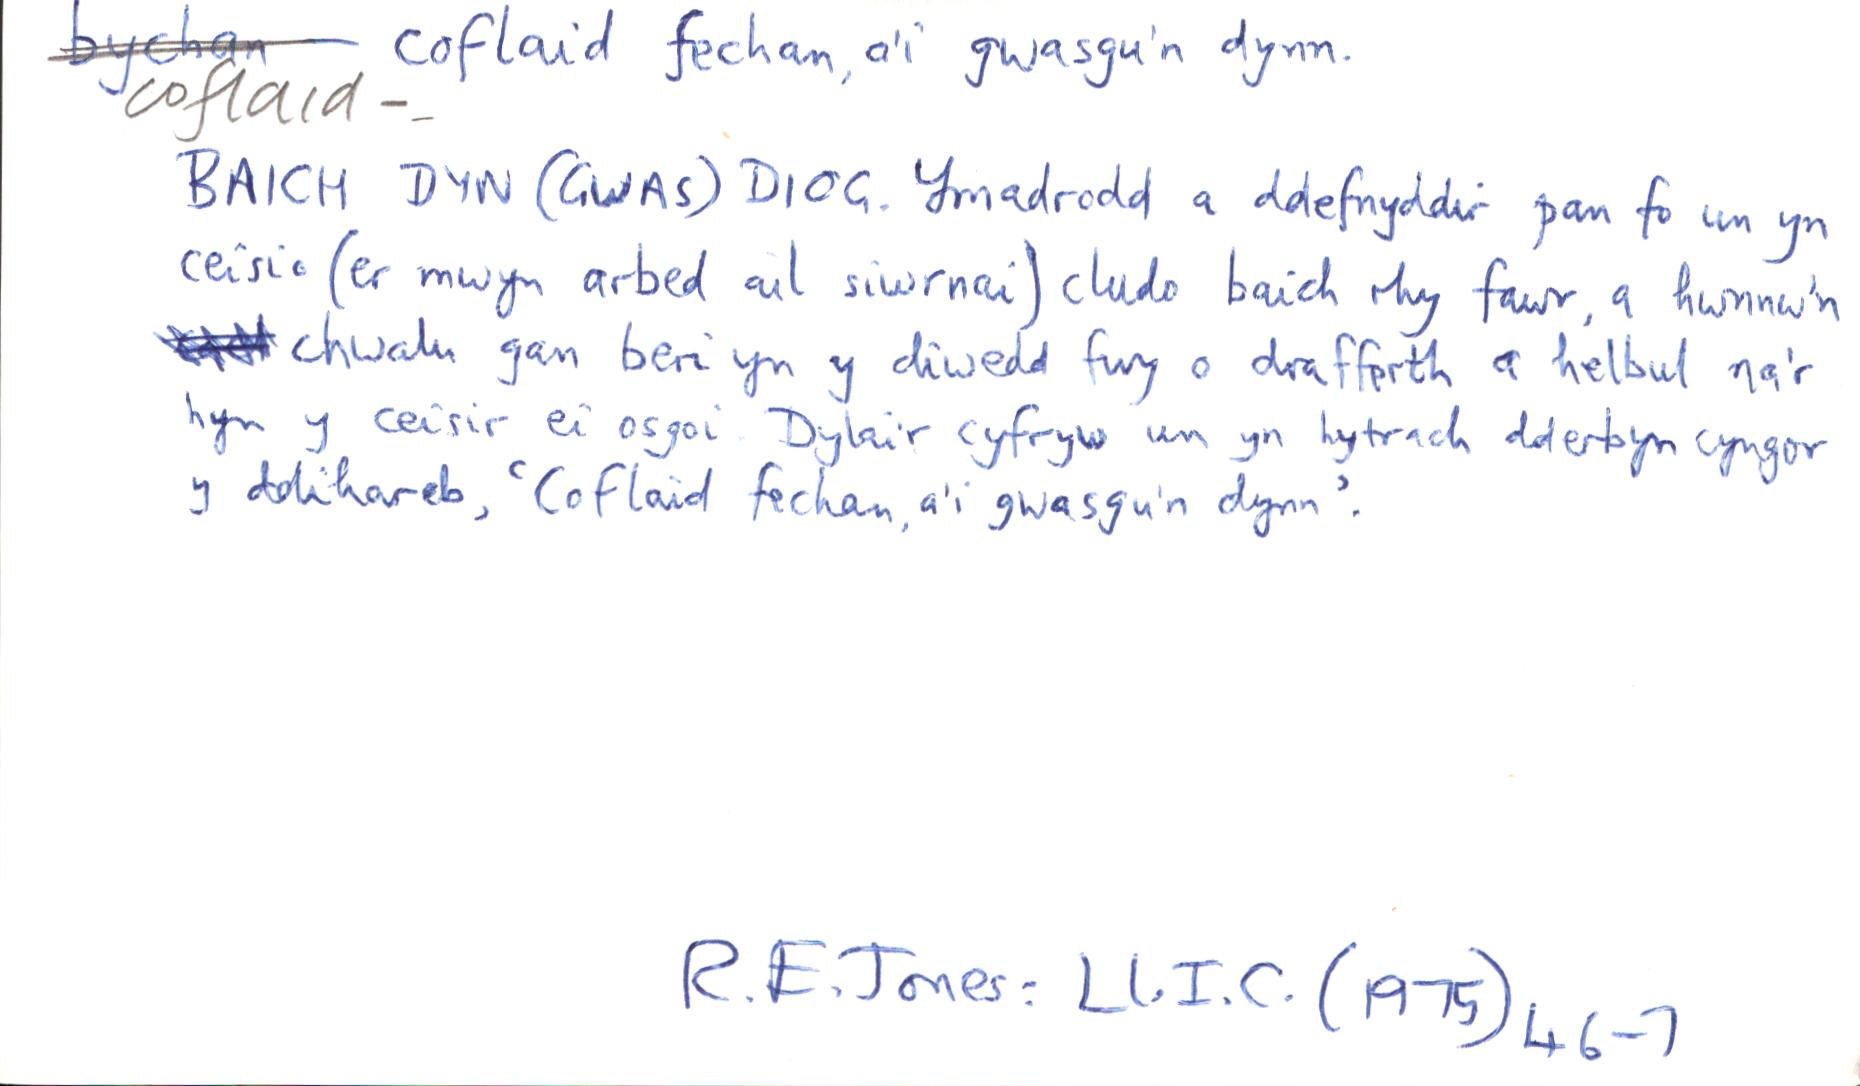 bychan coflaid fechan, a'i gwasgu'n dynn.
coflaid -
BAICH DYN (GWAS) DIOG. Ymadrodd a ddefnyddir pan fo un yn
ceisio (er mwyn arbed ail siwrnai) cludo baich rhy fawr, a hwnnw'n
chwalu gan beri yn y diwedd fwy o drafferth a helbul na'r
hyn y ceisir ei osgoi. Dylai'r cyfryw un yn hytrach dderbyn cyngor
y ddihareb, 'Coflaid fechan, a'i gwasgu'n dynn'.
R.E.Jones: Ll.I.C. (1975) 46-7